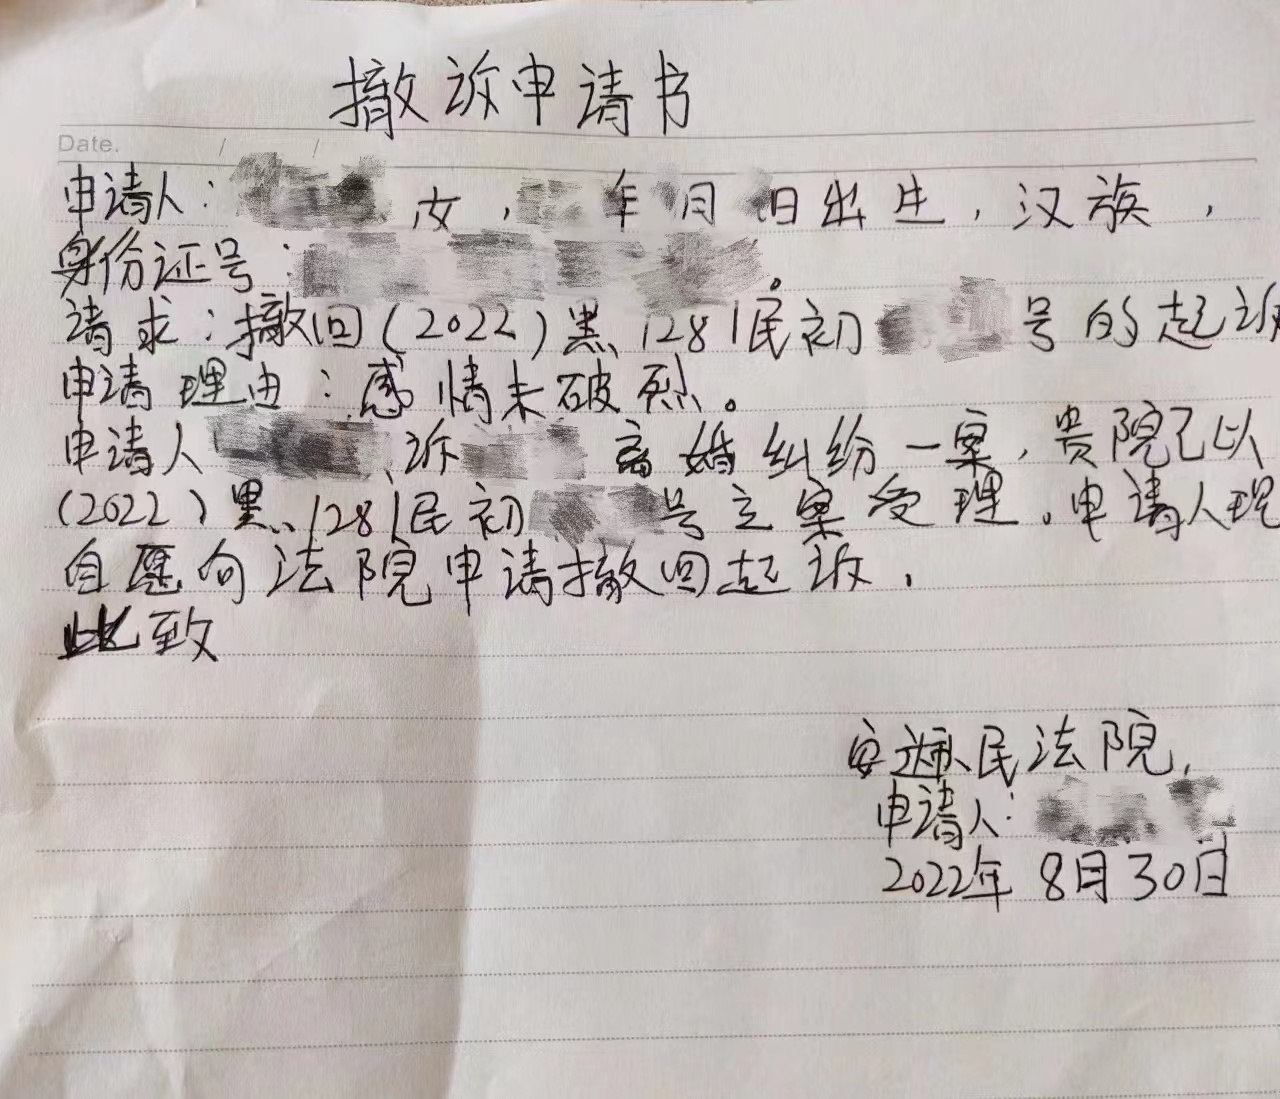 撤诉申请书
Date. / /
申请人: 女, 年 月 日出生,汉族,
身份证号:。
请求:撤回(2022)黑1281民初 号的起诉
申请理由:感情未破裂。
申请人 诉 离婚纠纷一案,贵院已以
(2022)黑1281民初 号立案受理。申请人现
自愿向法院申请撤回起诉,
此致
安达人民法院,
申请人:
2022年8月30日